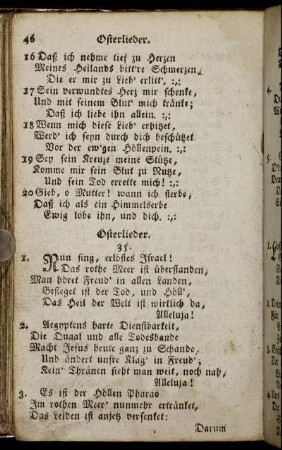 46 Osterlieder.
16 Daß ich nehme tief zu Herzen
Meines Heilands bitt're Schmerzen,
Die er mir zu Lieb' erlitt. :,:
17 Sein verwundtes Herz mir schenke,
Und mit seinem Blut' mich tränke;
Daß ich liebe ihn allein. :,:
18 Wenn mich diese Lieb' erhitzet,
Werd' ich seyn durch dich beschützet
Vor der ew'gen Höllenpein. :,:
19 Sey sein Kreuze meine Stütze,
Komme mir sein Blut zu Nutze,
Und sein Tod errette mich! :,:
20 Gieb, o Mutter! wann ich sterbe,
Daß ich als ein Himmelserbe
Ewig lobe ihn, und dich. :,:
Osterlieder.
35.
1. Nun sing, erlößtes Israel!
Das rothe Meer ist überstanden,
Man höret Freud' in allen Landen,
Besieget ist der Tod, und Höll',
Das Heil der Welt ist wirklich da,
Alleluja!
2. Aegyptens harte Dienstbarkeit,
Die Quaal und alle Todesbande
Macht Jesus heute ganz zu Schande,
Und ändert unsre Klag' in Freud';
Kein' Thränen sieht man weit, noch nah,
Alleluja!
3. Es ist der Höllen Pharao
Im rothen Meer' nunmehr ertränket,
Das Leiden ist anjetz versenket:
Darum